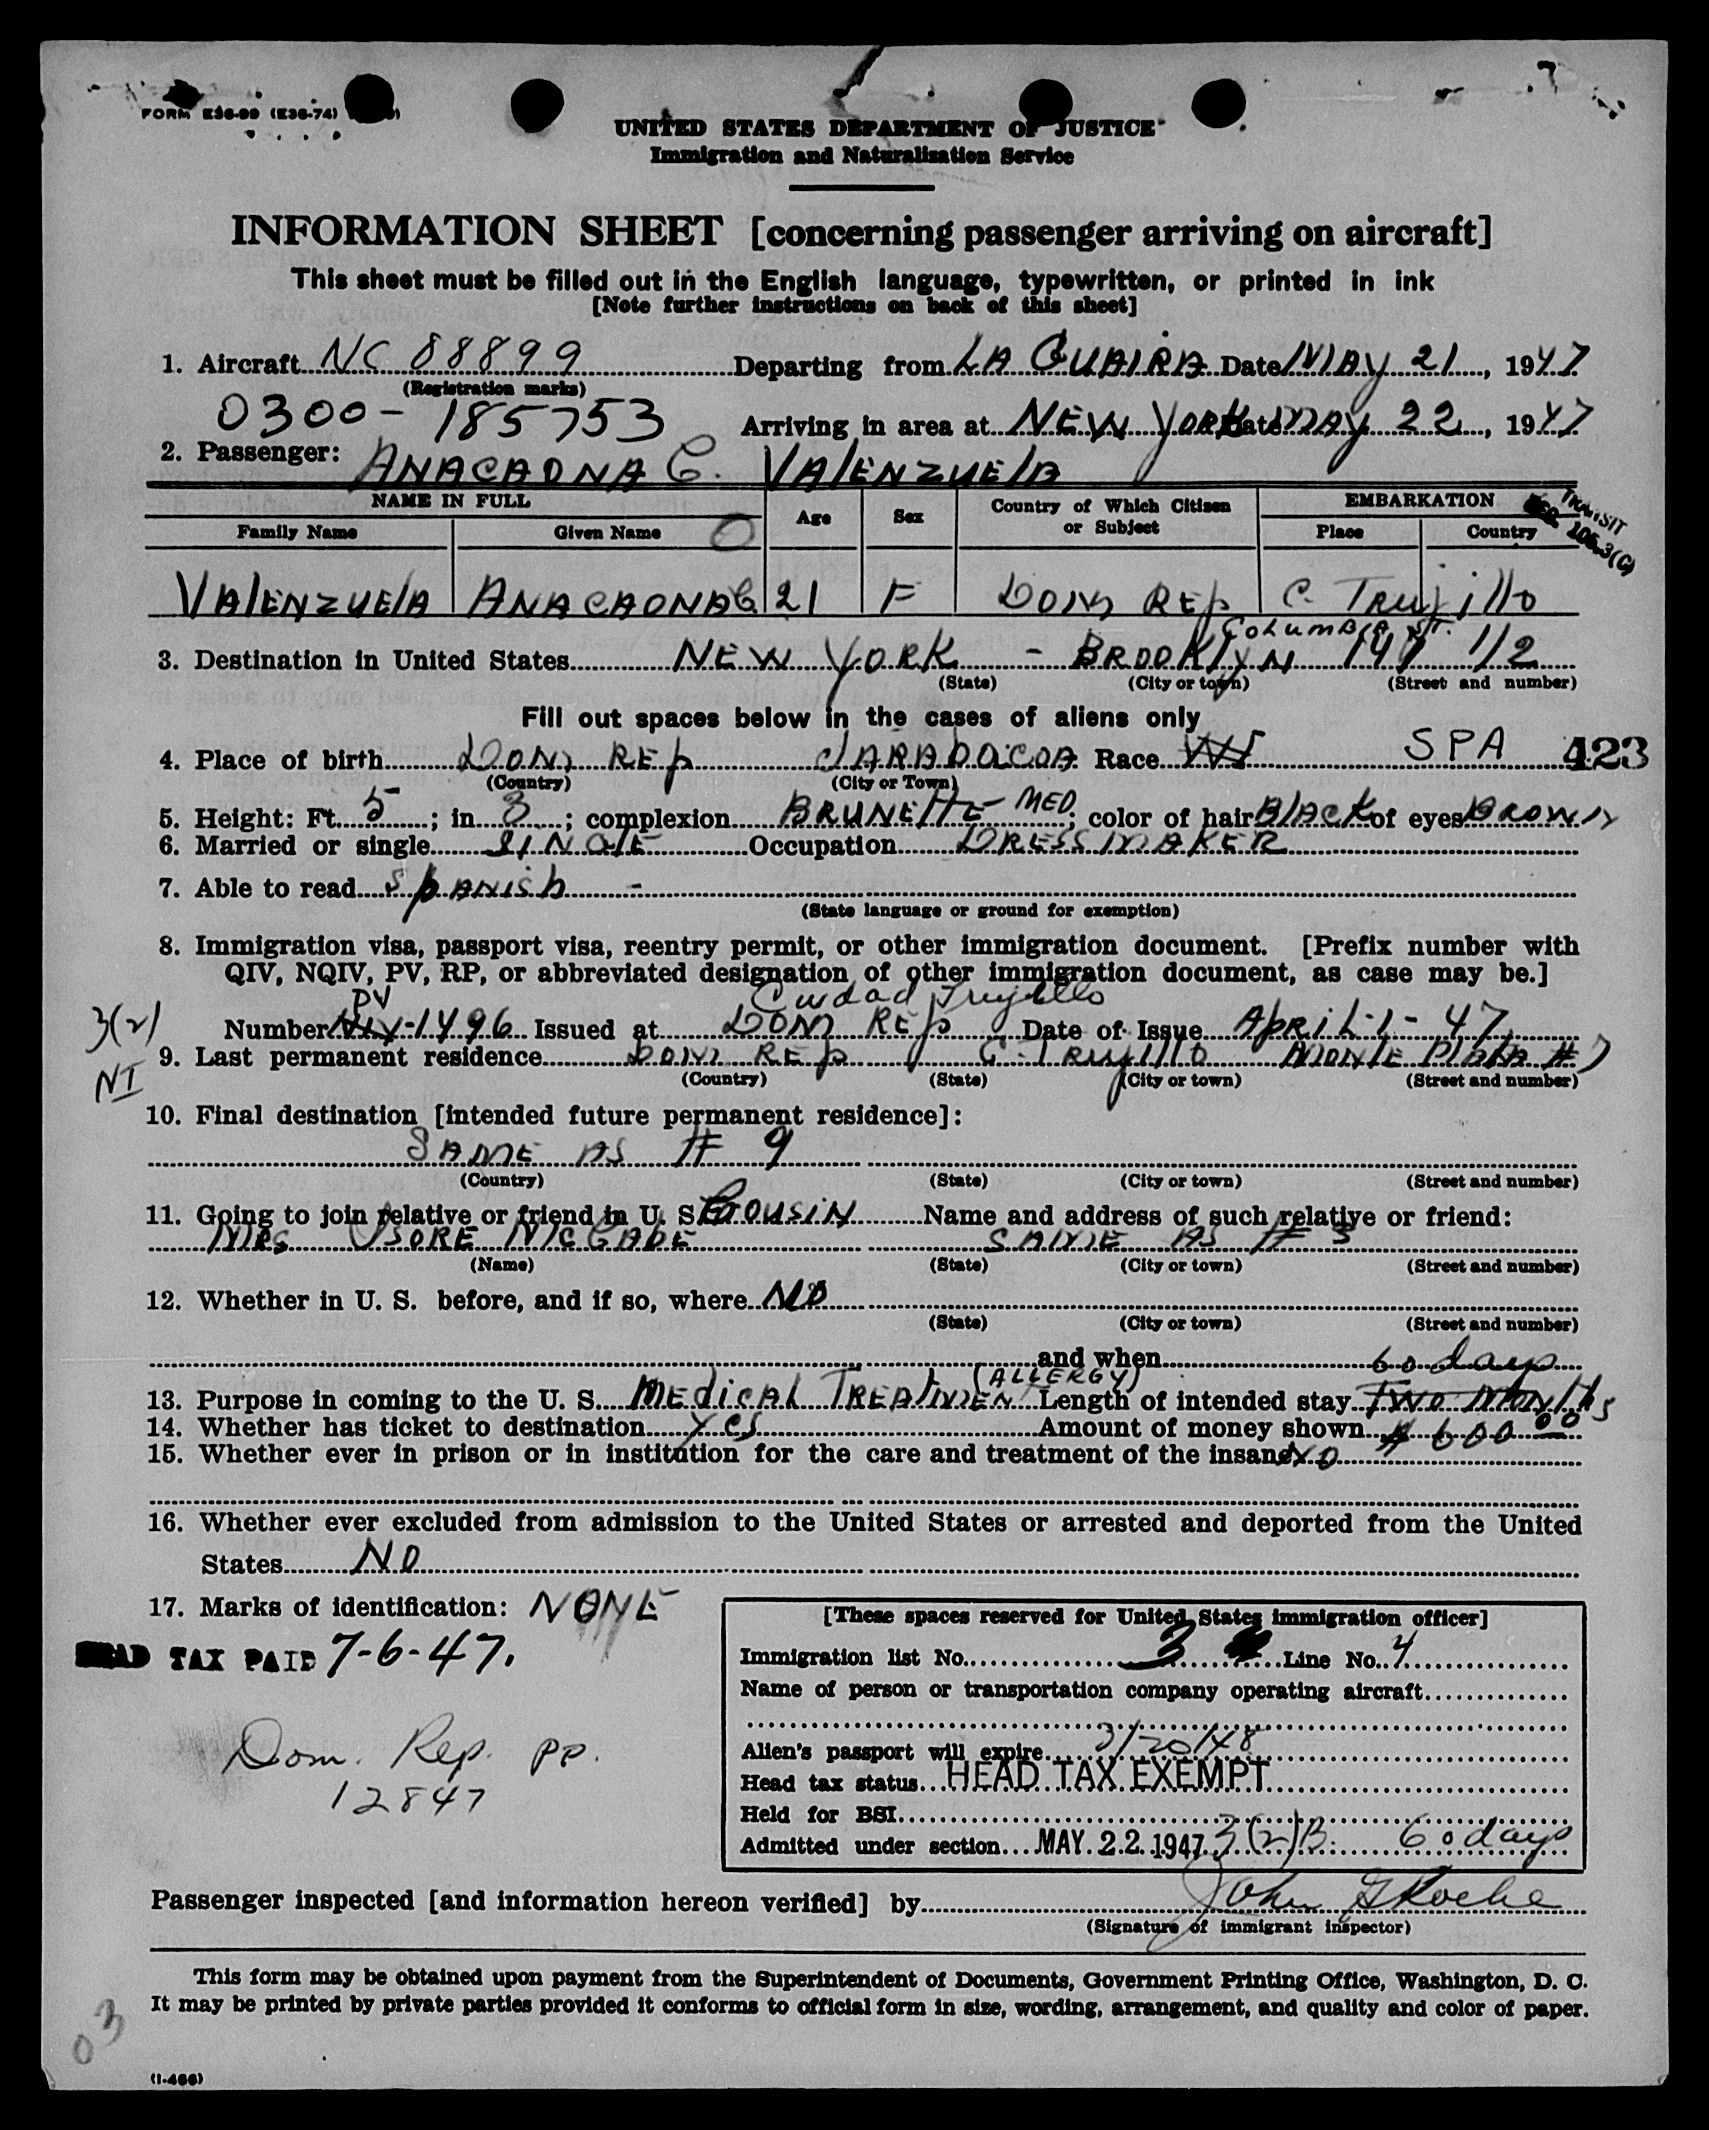 FORM E36-99 (E36-74)
UNITED STATES DEPARTMENT OF JUSTICE
Immigration and Naturalization Service
INFORMATION SHEET [concerning passenger arriving on aircraft]
This sheet must be filled out in the English language, typewritten, or printed in ink
[Note further instructions on back of this sheet]
1. Aircraft NC 88899 Departing from LA GUAIRA Date MAY 21, 1947
(Registration marks)
0300-185753 Arriving in area at NEW YORK Date MAY 22, 1947
2. Passenger: ANACAONA C. VALENZUELA
NAME IN FULL Age Sex Country of Which Citizen or Subject EMBARKATION TRANSIT
Family Name Given Name Place Country 105.3(C)
VALENZUELA ANACAONA C. 21 F DOM REP C. TRUJILLO
COLUMBIA ST.
3. Destination in United States NEW YORK - BROOKLYN 141 1/2
(State) (City or town) (Street and number)
Fill out spaces below in the cases of aliens only
4. Place of birth DOM REP JARABACOA Race W SPA 423
(Country) (City or Town)
5. Height: Ft. 5; in 3; complexion BRUNETTE MED; color of hair BLACK of eyes BROWN
6. Married or single SINGLE Occupation DRESSMAKER
7. Able to read Spanish -
(State language or ground for exemption)
8. Immigration visa, passport visa, reentry permit, or other immigration document. [Prefix number with
QIV, NQIV, PV, RP, or abbreviated designation of other immigration document, as case may be.]
PV Ciudad Trujillo
3(2) Number NIV-1496 Issued at DOM REP Date of Issue APRIL-1-47
9. Last permanent residence DOM REP C. TRUJILLO MONTE PLATA #7
NI (Country) (State) (City or town) (Street and number)
10. Final destination [intended future permanent residence]:
SAME AS # 9
(Country) (State) (City or town) (Street and number)
11. Going to join relative or friend in U. S. COUSIN Name and address of such relative or friend:
MRS SAME AS # 3
(Name) (State) (City or town) (Street and number)
12. Whether in U. S. before, and if so, where NO
(State) (City or town) (Street and number)
and when 60 days
(ALLERGY)
13. Purpose in coming to the U. S. MEDICAL TREATMENT Length of intended stay TWO MONTHS
14. Whether has ticket to destination YES Amount of money shown $ 600 00
15. Whether ever in prison or in institution for the care and treatment of the insane NO
16. Whether ever excluded from admission to the United States or arrested and deported from the United
States NO
17. Marks of identification: NONE
HEAD TAX PAID 7-6-47.
Dom. Rep. PP.
12847
[These spaces reserved for United States immigration officer]
Immigration list No. 3 Line No. 4
Name of person or transportation company operating aircraft
Alien's passport will expire 3/20/48
Head tax status HEAD TAX EXEMPT
Held for BSI
Admitted under section MAY 22 1947 3(2)B. 60 days
Passenger inspected [and information hereon verified] by John G Roche
(Signature of immigrant inspector)
This form may be obtained upon payment from the Superintendent of Documents, Government Printing Office, Washington, D. C.
It may be printed by private parties provided it conforms to official form in size, wording, arrangement, and quality and color of paper.
03
(I-466)